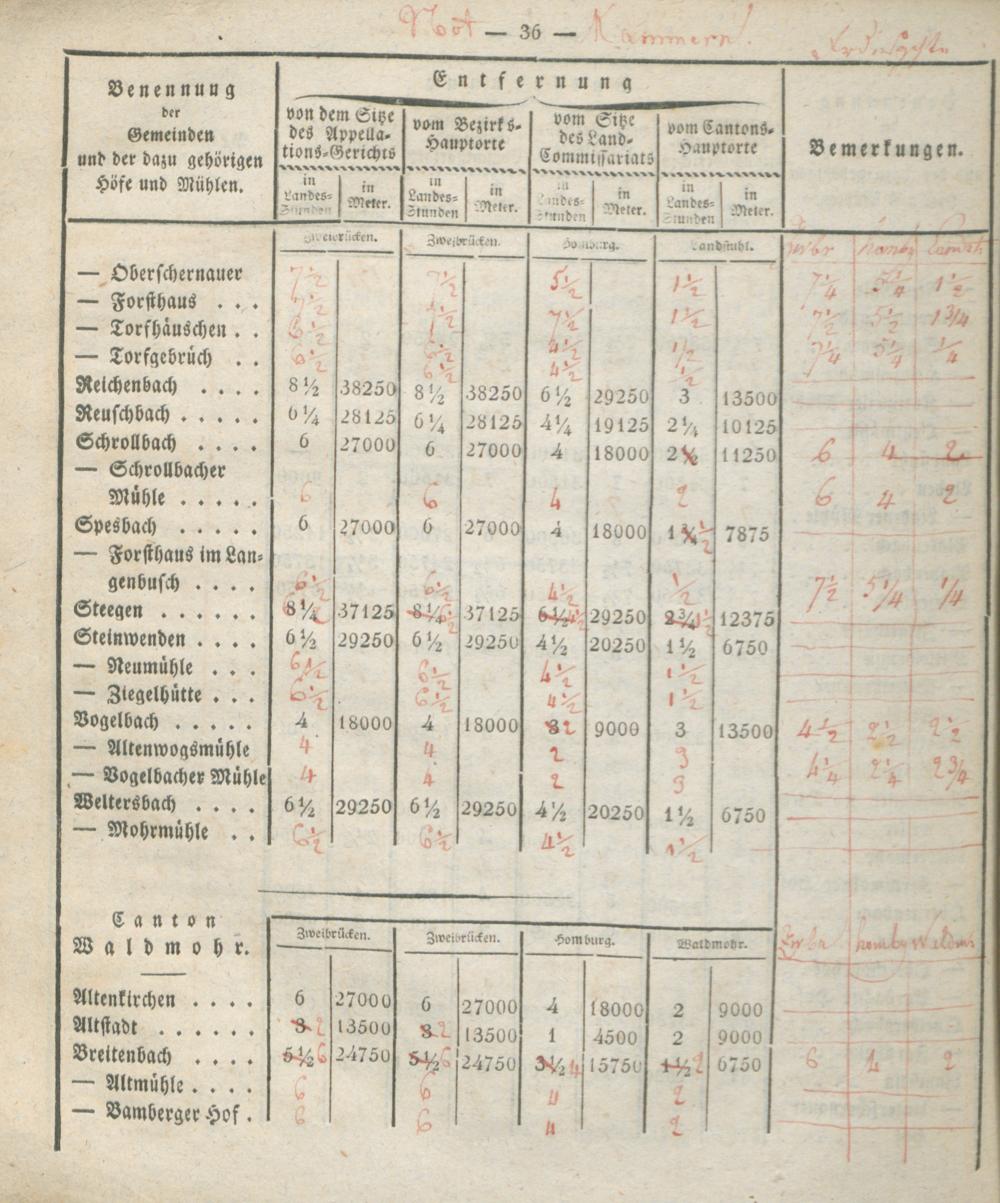 Not — 36 — Kammern!
Benennung
der
Gemeinden
und der dazu gehörigen
Höfe und Mühlen.
Entfernung
von dem Sitze des Appellations-Gerichts
vom Bezirks-Hauptorte
vom Sitze des Land-Commissariats
vom Cantons-Hauptorte
Bemerkungen.
in Landes-Stunden in Meter. in Landes-Stunden in Meter. in Landes-Stunden in Meter. in Landes-Stunden in Meter.
Zweibrücken. Zweibrücken. Homburg. Landstuhl.
— Oberschernauer 7½ 7½ 5½ 1½ 7¼ 5¼ 1½
— Forsthaus . . . 7½ 7½ 7½ 1½ 7½ 5½ 1¾
— Torfhäuschen . . 6½ 6½ 4½ ½ 7¼ 5¼ ¼
— Torfgebrüch . . 6½ 6½ 4½ ½
Reichenbach . . . . 8½ 38250 8½ 38250 6½ 29250 3 13500
Neuschbach . . . . . 6¼ 28125 6¼ 28125 4¼ 19125 2¼ 10125
Schrollbach . . . . 6 27000 6 27000 4 18000 2½ 11250 6 4 2
— Schrollbacher
Mühle . . . . . 6 6 4 2 6 4 2
Spesbach . . . . . 6 27000 6 27000 4 18000 1¾ ½ 7875
— Forsthaus im Lan-
genbusch . . . . 6½ 6½ 4½ ½ 7½ 5¼ ¼
Steegen . . . . . . 8¼ 37125 8¼ 37125 6½ 29250 2¾ 12375
Steinwenden . . . . 6½ 29250 6½ 29250 4½ 20250 1½ 6750
— Neumühle . . . 6½ 6½ 4½ 1½
— Ziegelhütte . . . 6½ 6½ 4½ 1½
Vogelbach . . . . . 4 18000 4 18000 3 2 9000 3 13500 4½ 2½ 2½
— Altenwogsmühle 4 4 2 3 4¼ 2¼ 2¾
— Vogelbacher Mühle 4 4 2 3
Weltersbach . . . . 6½ 29250 6½ 29250 4½ 20250 1½ 6750
— Mohrmühle . . 6½ 6½ 4½ 1½
Canton
Waldmohr.
Zweibrücken. Zweibrücken. Homburg. Waldmohr.
Altenkirchen . . . . 6 27000 6 27000 4 18000 2 9000
Altstadt . . . . . . 3 2 13500 3 2 13500 1 4500 2 9000
Breitenbach . . . . 5½ 6 24750 5½ 6 24750 3½ 4 15750 1½ 2 6750 6 4 2
— Altmühle . . . . 6 6 4 2
— Bamberger Hof . 6 6 4 2